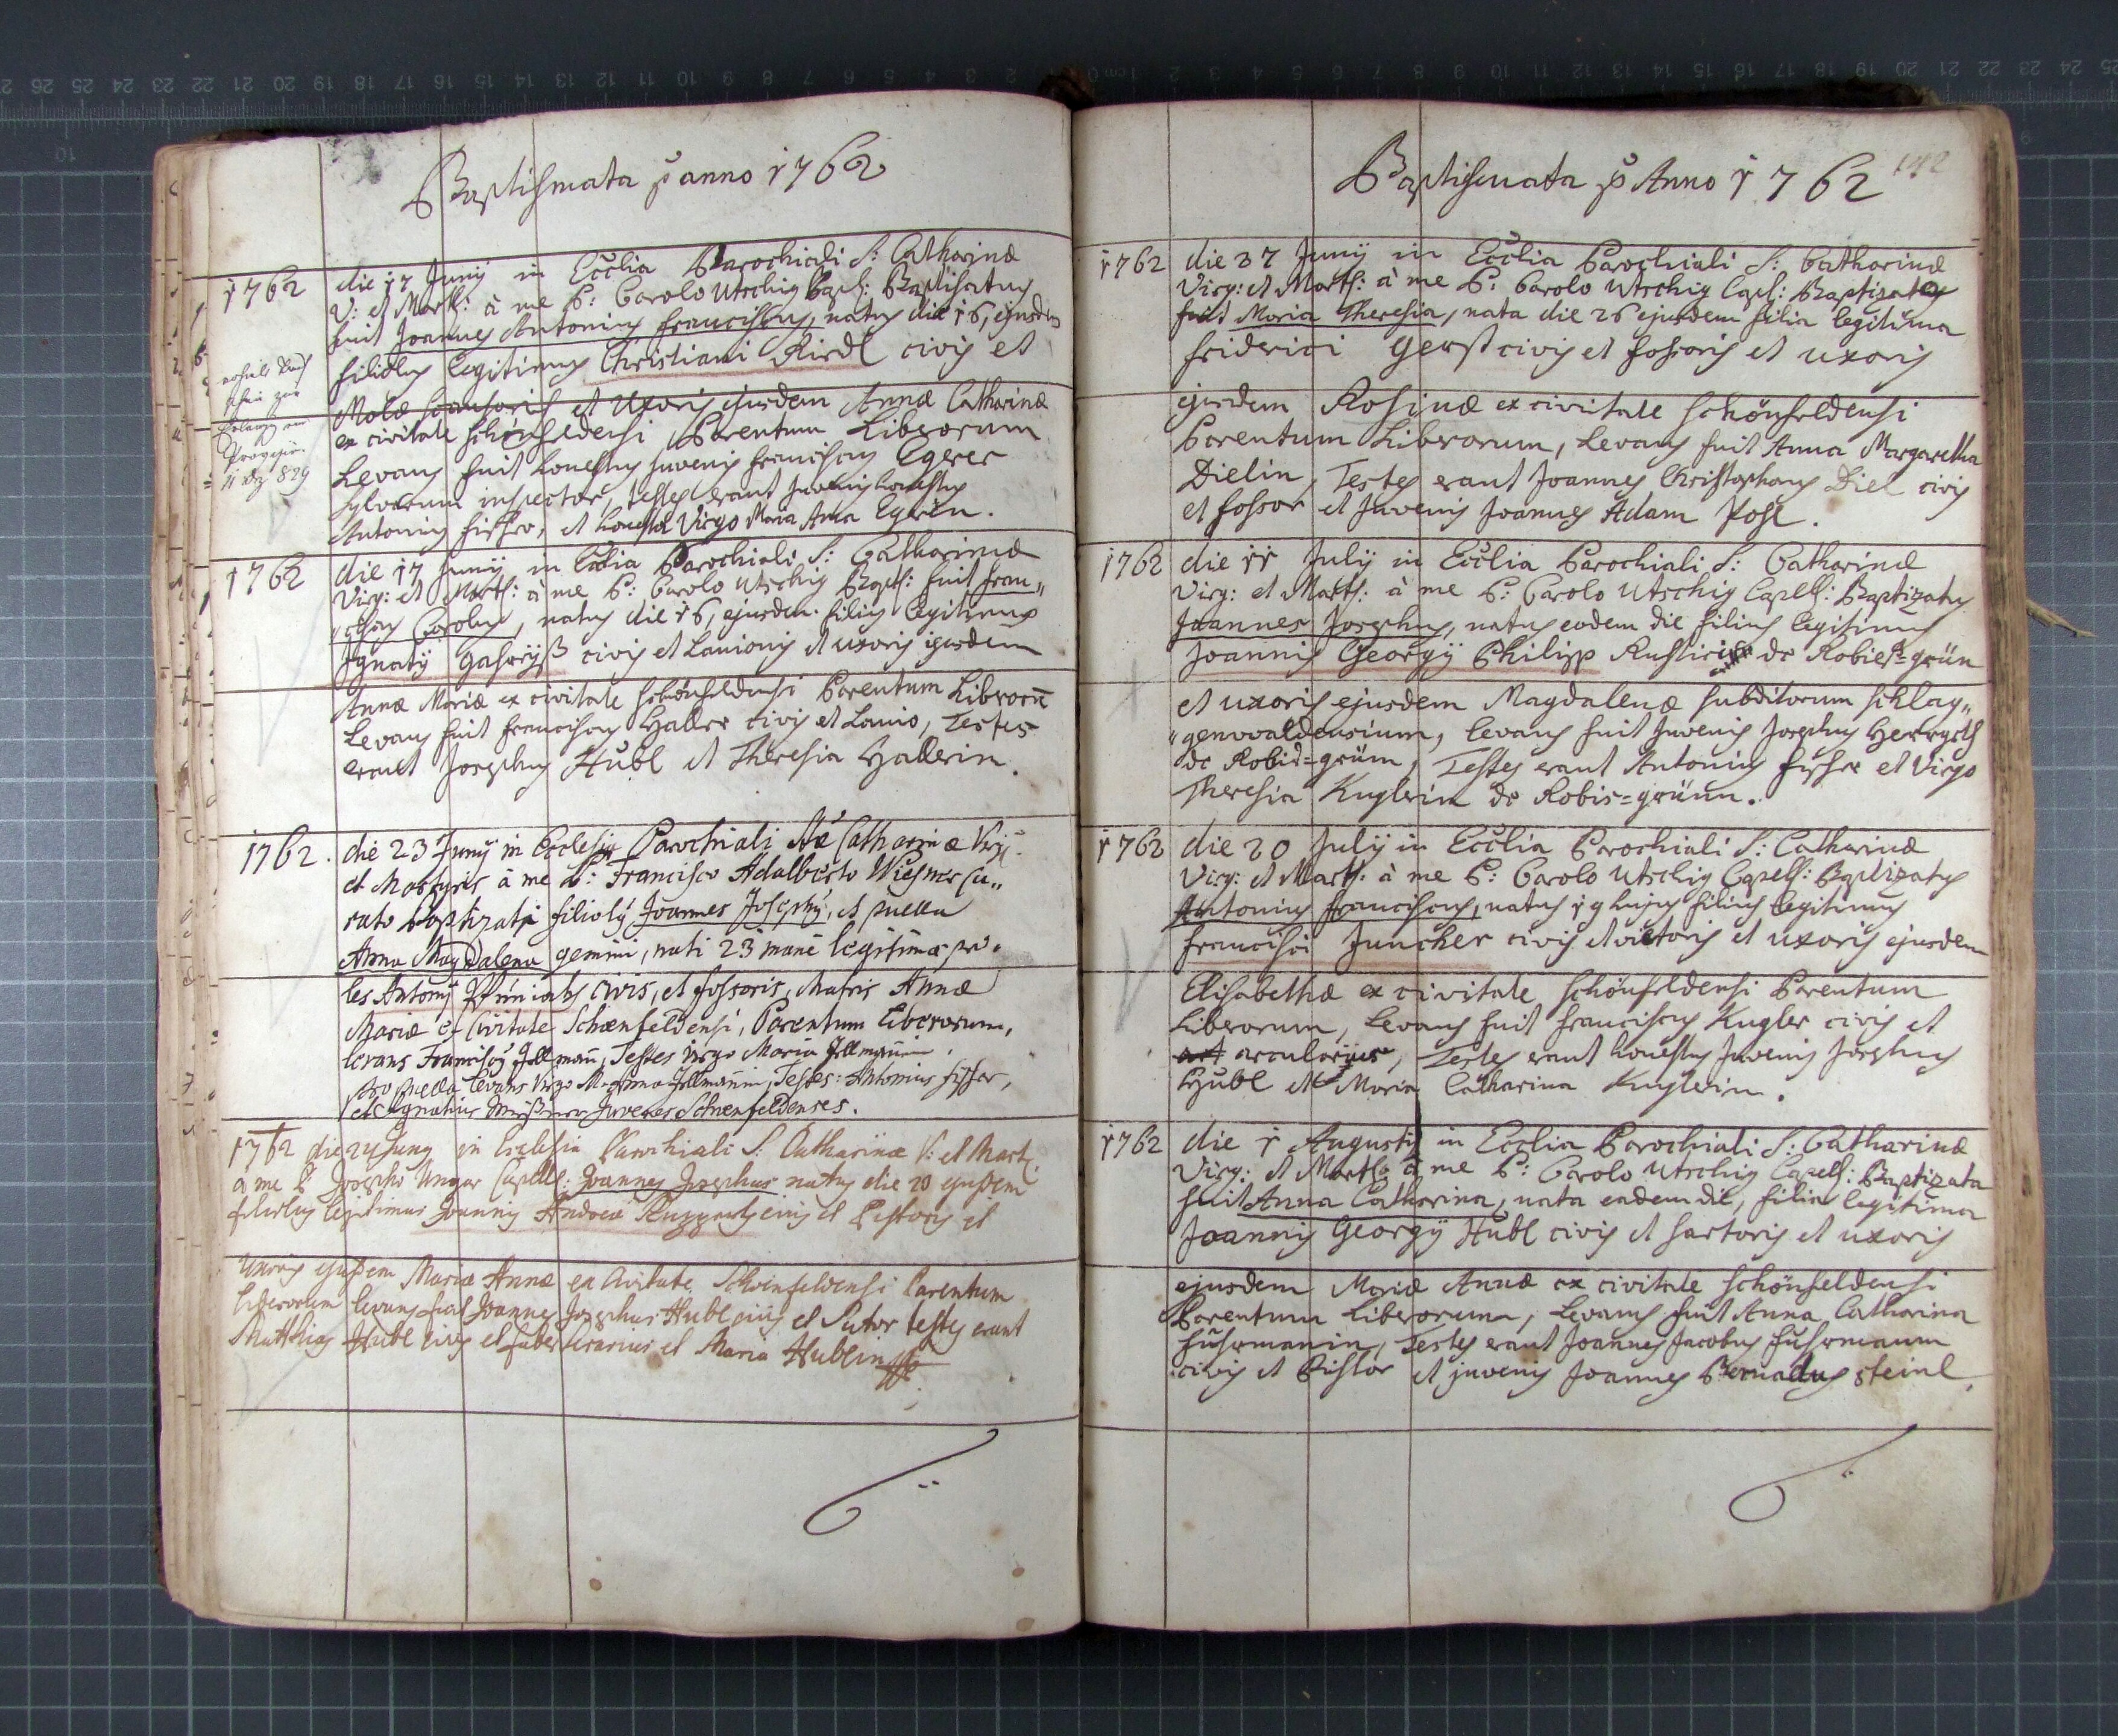 Baptismata p anno 1762
1762 die 17 Junÿ in Ecclia Parochiali S: Catharinæ
V: et Mart: à me P: Carolo Utschig Capl: Baptisatus
fuit Joannes Antonius Franciscus, natus die 16, ejusdem
filiolus legitimus Christiani Rirdl civis et
Molæ et Uxoris ejusdem Annæ Catharinæ
ex civitate Schönfeldensi Parentum Liberorum
Levans fuit honestus Juvenis Franciscus Egerer
sylvarum inspector, testes erant Juvenis honestus
Antonius Fischer, et honesta Virgo Maria Anna Egrin.
1762 die 17 Junÿ in Ecclia Parochiali S: Catharinæ
Virg: et Mart: à me P: Carolo Utschig Bapt: fuit Fran„
„ciscus Carolus, natus die 16, ejusdem filius legitimus
Ignatÿ civis et Lanionis et uxoris ejusdem
Annæ Mariæ ex civitate Schönfeldensi Parentum Liberorū
Levans fuit Franciscus Haller civis et Lanio, Testes
erant Josephus Hübl et Theresia Hallerin.
1762. die 23 Junÿ in Ecclesia Parochiali Stæ Catharinæ Virg:
et Martyris à me P: Francisco Adalberto Wiesner Cu„
rato baptizati filioly Joannes Josephy, et puella
Anna Magdalena gemini, nati 23 mane legitimæ pro„
les Antonÿ civis, et fossoris, Matris Annæ
Mariæ ex Civitate Schœnfeldensi, Parentum Liberorum,
levans Franciscy Illmañ, Testes Virgo Maria Illmañin.
pro puella levans Virgo M. Anna Illmañin, Testes: Antonius Fischer,
et Ignatius Juvenes Schœnfeldenses.
1762 die 24 Juny in Ecclesia Parochiali S: Catharinæ V: et Mart:
a me P. Josepho Ungar Capell: Joannes Josephus natus die 20 ejusdem
filiolus legitimus Joannis Andreæ civis et Pistoris et
Uxoris ejusdem Mariæ Annæ ex Civitate Schœnfeldensi Parentum
liberorum levans fuit Joannes Josephus Hubl civis et Sutor testes erant
Matthias Hubl civis et faber Ararius et Maria Hublin
Baptismata p Anno 1762
142
1762 die 27 Junÿ in Ecclia Parochiali S: Catharinæ
Virg: et Mart: à me P: Carolo Utschig Capl: Baptizata
fuit Maria Theresia, nata die 26 ejusdem filia legitima
Friderici Gerst civis et fossoris et uxoris
ejusdem Rosinæ ex civitate Schönfeldensi
Parentum Liberorum, Levans fuit Anna Margaretha
Dielin, Testes erant Joannes Christophorus Diel civis
et fossor et Juvenis Joannes Adam Posl.
1762 die 11 Julÿ in Ecclia Parochiali S: Catharinæ
Virg: et Mart: à me P: Carolo Utschig Capell: Baptizatus
Joannes Josephus, natus eodem die filius legitimus
Joannis Georgÿ Philipp Rustici de Robies=grün
et uxoris ejusdem Magdalenæ subditorum Schlag„
„genwaldensium, Levans fuit Juvenis Josephus
de Robis=grüm, Testes erant Antonius Fischer et Virgo
Theresia Kuglerin de Robis=grünn.
1762 die 20 Julÿ in Ecclia Parochiali S: Catharinæ
Virg: et Mart: à me P: Carolo Utschig Capell: Baptizatus
Antonius Franciscus, natus 19 hujus filius legitimus
Francisci Juncher civis et victoris et uxoris ejusdem
Elisabethæ ex civitate Schönfeldensi Parentum
Liberorum, Levans fuit Franciscus Kugler civis et
arcularius, Testes erant honestus Juvenis Josephus
Hübl et Maria Catharina Kuglerin.
1762 die 1 Augusti in Ecclia Parochiali S: Catharinæ
Virg: et Mart: à me P: Carolo Utschig Capell: Baptizata
fuit Anna Catharina, nata eadem die, filia legitima
Joannis Georgÿ Hübl civis et sartoris et uxoris
ejusdem Mariæ Annæ ex civitate Schönfeldensi
Parentum Liberorum, Levans fuit Anna Catharina
Fuhrmanin, Testes erant Joannes Jacobus Fuhrmann
civis et Pistor et juvenis Joannes Bernadus Steinl.